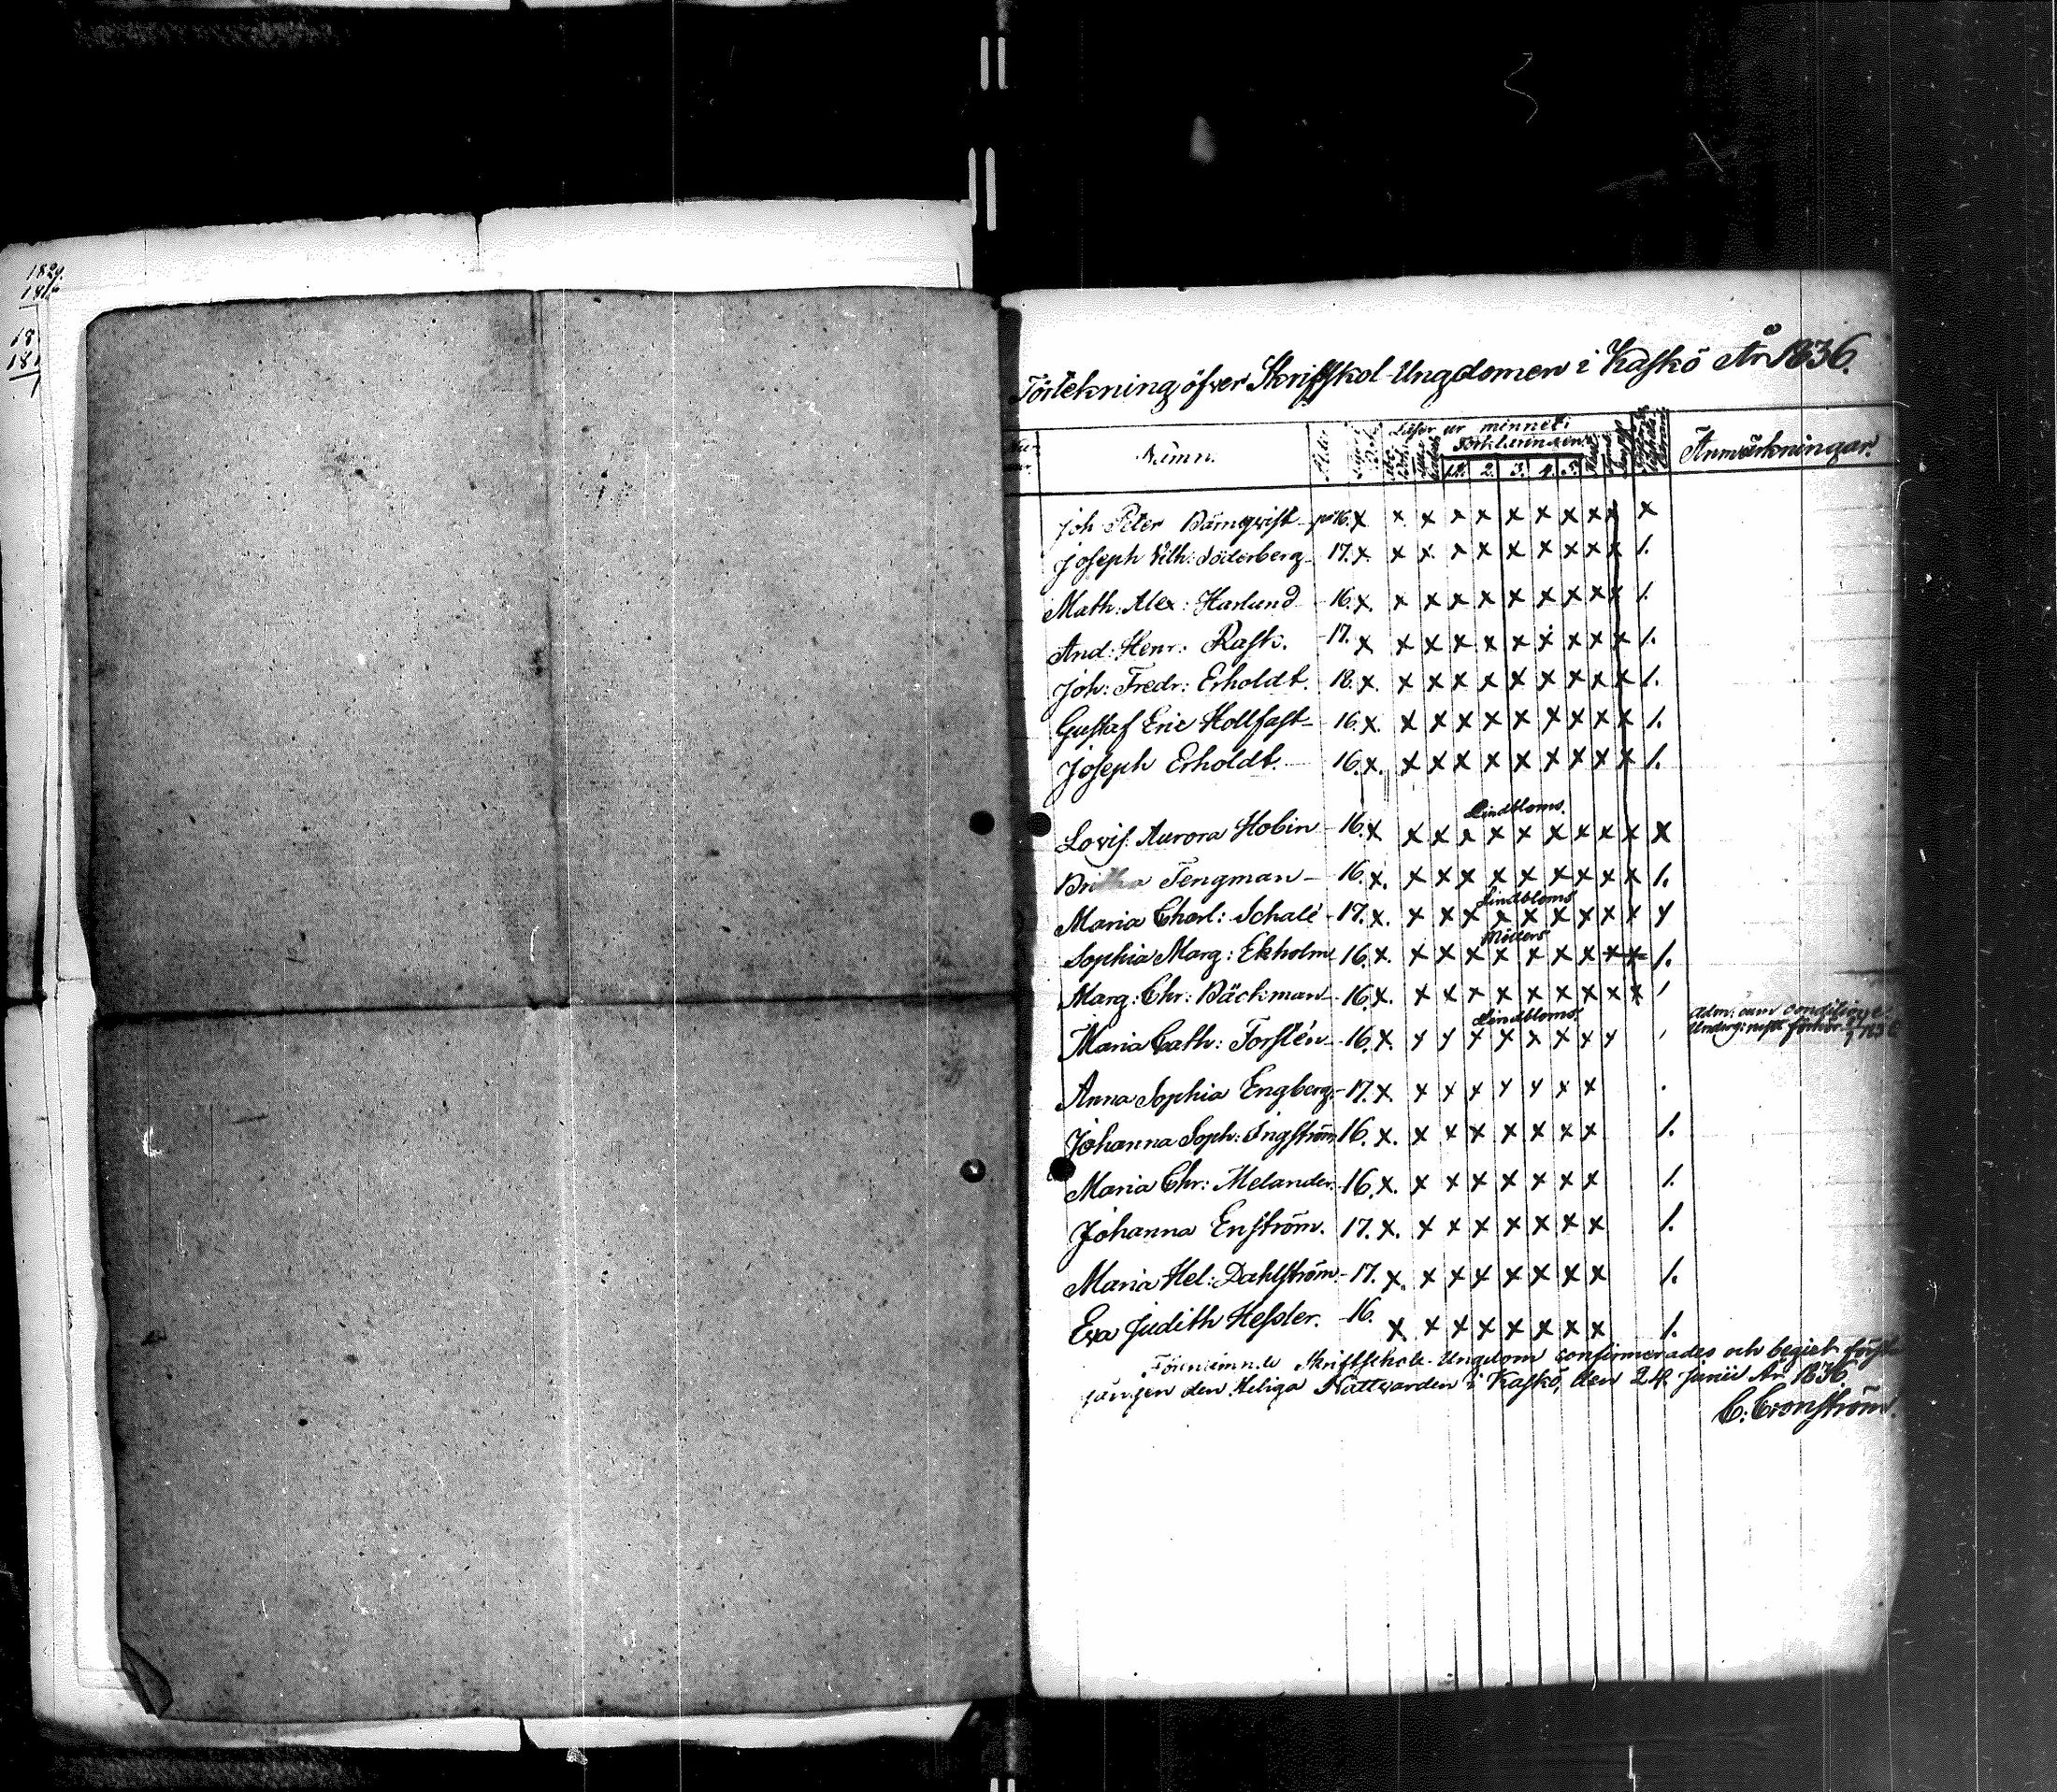 1829.
18
18
Förtekning öfver Skriftskol Ungdomen i Kaskö År 1836.
Namn. Ålder Läser ur minnet: Anmärkningar.
Förklaringen:
1. 2. 3. 4. 5.
Joh Peter 16. x x x x x x x x x x x x
Joseph Vilh: Söderberg 17. x. x x. x x x x x x x 1.
Math: Alex: Harlund 16. x. x x x x x x x x x 1.
And: Henr: Rask. 17. x x x x x x x x x x 1.
Joh: Fredr: Erholdt. 18. x. x x x x x x x x x 1.
Gustaf Eric Hollfast 16. x. x x x x x x x x x 1.
Joseph Erholdt. 16. x. x x x x x x x x x 1.
Lindbloms.
Lovis. Aurora Hobin 16. x x x x x x x x x x x
Tengman 16. x. x x x x x x x x x 1.
Lindbloms
Maria Charl: Schalé 17. x. x x x x x x x x x x
Möllers
Sophia Marg: Ekholm 16. x. x x x x x x x x x 1.
Marg: Chr: Bäckman 16. x. x x x x x x x x x 1
Lindbloms
Maria Cath: Forstén 16. x. x x x x x x x x Adm: cum conditione.
Anna Sophia Engberg 17. x. x x x x x x x
Johanna Soph: Ingström 16. x. x x x x x x x 1.
Maria Chr: Melander. 16. x. x x x x x x x 1.
Johanna Enström. 17. x. x x x x x x x 1.
Maria Hel: Dahlström 17. x. x x x x x x x 1.
Eva Judith Hessler. 16. x. x x x x x x x 1.
Förenämnde Skriftschole Ungdom confirmerades och begick först
gången den Heliga Nattwarden i Kaskö, den 24 Junii År 1836.
C: Cronström.